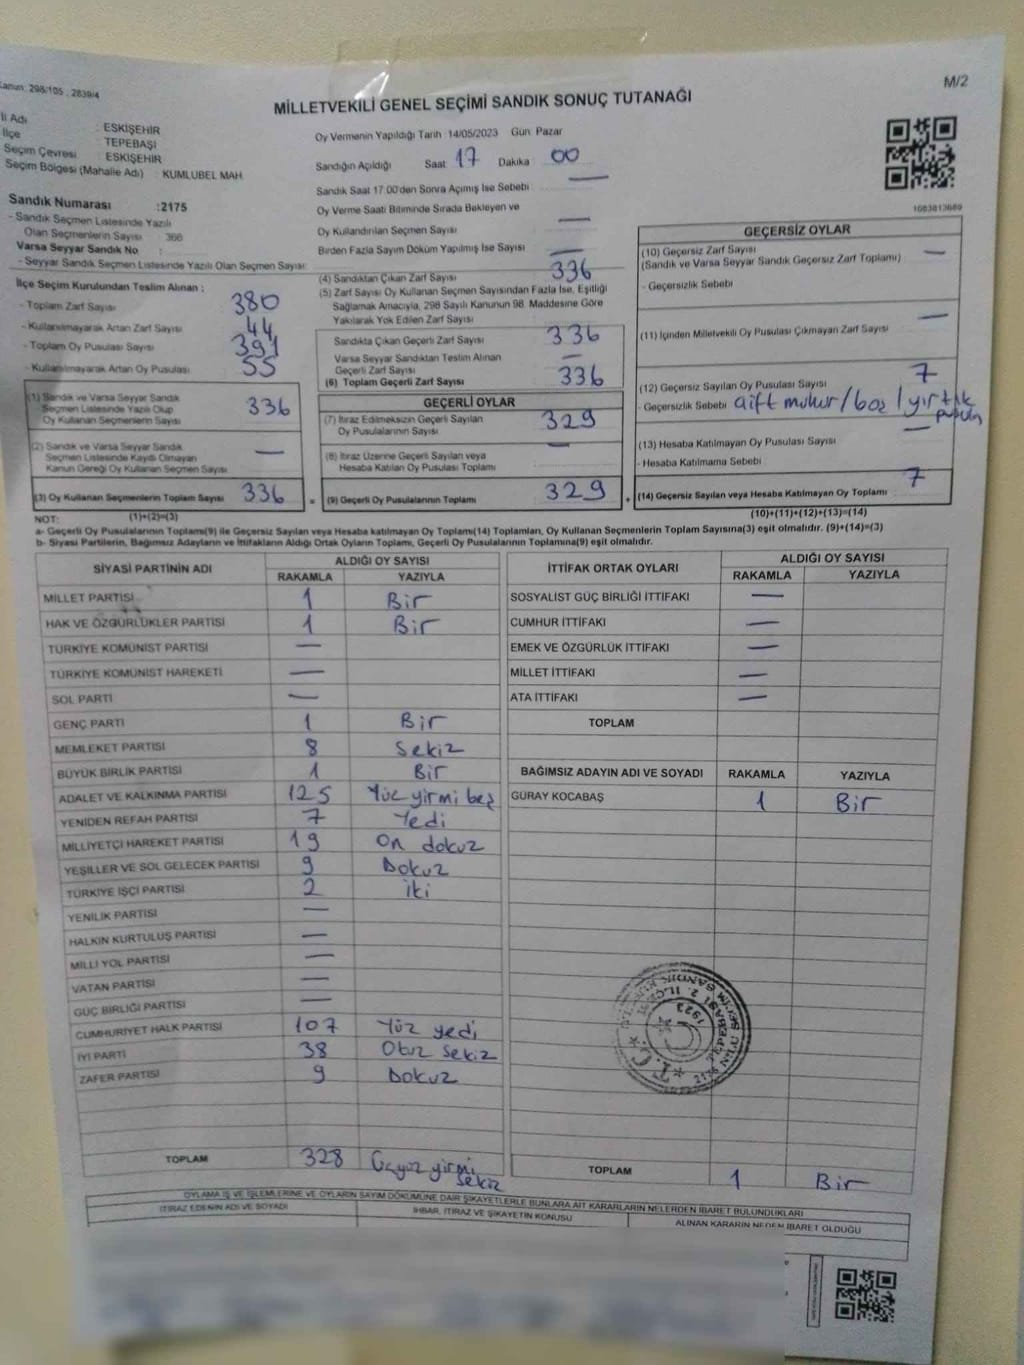 Kanun: 298/105 , 2839/4
M/2
MİLLETVEKİLİ GENEL SEÇİMİ SANDIK SONUÇ TUTANAĞI
İl Adı : ESKİŞEHİR
İlçe : TEPEBAŞI
Seçim Çevresi : ESKİŞEHİR
Seçim Bölgesi (Mahalle Adı) : KUMLUBEL MAH
Sandık Numarası :2175
- Sandık Seçmen Listesinde Yazılı
Olan Seçmenlerin Sayısı : 366
Varsa Seyyar Sandık No :
- Seyyar Sandık Seçmen Listesinde Yazılı Olan Seçmen Sayısı:
İlçe Seçim Kurulundan Teslim Alınan :
- Toplam Zarf Sayısı 380
- Kullanılmayarak Artan Zarf Sayısı 44
- Toplam Oy Pusulası Sayısı 391
- Kullanılmayarak Artan Oy Pusulası 55
(1) Sandık ve Varsa Seyyar Sandık
Seçmen Listesinde Yazılı Olup
Oy Kullanan Seçmenlerin Sayısı 336
(2) Sandık ve Varsa Seyyar Sandık
Seçmen Listesinde Kaydı Olmayan
Kanun Gereği Oy Kullanan Seçmen Sayısı —
(3) Oy Kullanan Seçmenlerin Toplam Sayısı 336 =
(1)+(2)=(3)
Oy Vermenin Yapıldığı Tarih :14/05/2023 Gün Pazar
Sandığın Açıldığı Saat 17 Dakika 00
Sandık Saat 17.00'den Sonra Açılmış İse Sebebi —
Oy Verme Saati Bitiminde Sırada Bekleyen ve
Oy Kullandırılan Seçmen Sayısı —
Birden Fazla Sayım Döküm Yapılmış İse Sayısı —
(4) Sandıktan Çıkan Zarf Sayısı 336
(5) Zarf Sayısı Oy Kullanan Seçmen Sayısından Fazla İse, Eşitliği
Sağlamak Amacıyla, 298 Sayılı Kanunun 98. Maddesine Göre
Yakılarak Yok Edilen Zarf Sayısı :
Sandıkta Çıkan Geçerli Zarf Sayısı 336
Varsa Seyyar Sandıktan Teslim Alınan
Geçerli Zarf Sayısı —
(6) Toplam Geçerli Zarf Sayısı 336
GEÇERLİ OYLAR
(7) İtiraz Edilmeksizin Geçerli Sayılan
Oy Pusulalarının Sayısı 329
(8) İtiraz Üzerine Geçerli Sayılan veya
Hesaba Katılan Oy Pusulası Toplamı —
(9) Geçerli Oy Pusulalarının Toplamı 329 +
1683813689
GEÇERSİZ OYLAR
(10) Geçersiz Zarf Sayısı —
(Sandık ve Varsa Seyyar Sandık Geçersiz Zarf Toplamı)
- Geçersizlik Sebebi
(11) İçinden Milletvekili Oy Pusulası Çıkmayan Zarf Sayısı —
(12) Geçersiz Sayılan Oy Pusulası Sayısı 7
- Geçersizlik Sebebi
(13) Hesaba Katılmayan Oy Pusulası Sayısı —
- Hesaba Katılmama Sebebi
(14) Geçersiz Sayılan veya Hesaba Katılmayan Oy Toplamı 7
(10)+(11)+(12)+(13)=(14)
NOT:
a- Geçerli Oy Pusulalarının Toplamı(9) ile Geçersiz Sayılan veya Hesaba katılmayan Oy Toplamı(14) Toplamları, Oy Kullanan Seçmenlerin Toplam Sayısına(3) eşit olmalıdır. (9)+(14)=(3)
b- Siyasi Partilerin, Bağımsız Adayların ve İttifakların Aldığı Ortak Oyların Toplamı, Geçerli Oy Pusulalarının Toplamına(9) eşit olmalıdır.
SİYASİ PARTİNİN ADI ALDIĞI OY SAYISI
RAKAMLA YAZIYLA
MİLLET PARTİSİ 1 Bir
HAK VE ÖZGÜRLÜKLER PARTİSİ 1 Bir
TÜRKİYE KOMÜNİST PARTİSİ —
TÜRKİYE KOMÜNİST HAREKETİ —
SOL PARTİ —
GENÇ PARTİ 1 Bir
MEMLEKET PARTİSİ 8 Sekiz
BÜYÜK BİRLİK PARTİSİ 1 Bir
ADALET VE KALKINMA PARTİSİ 125 Yüz yirmi beş
YENİDEN REFAH PARTİSİ 7 Yedi
MİLLİYETÇİ HAREKET PARTİSİ 19 On dokuz
YEŞİLLER VE SOL GELECEK PARTİSİ 9 Dokuz
TÜRKİYE İŞÇİ PARTİSİ 2 iki
YENİLİK PARTİSİ —
HALKIN KURTULUŞ PARTİSİ —
MİLLİ YOL PARTİSİ —
VATAN PARTİSİ —
GÜÇ BİRLİĞİ PARTİSİ —
CUMHURİYET HALK PARTİSİ 107 Yüz yedi
İYİ PARTİ 38 Otuz sekiz
ZAFER PARTİSİ 9 Dokuz
TOPLAM 328 Üçyüz yirmi
sekiz
İTTİFAK ORTAK OYLARI ALDIĞI OY SAYISI
RAKAMLA YAZIYLA
SOSYALİST GÜÇ BİRLİĞİ İTTİFAKI —
CUMHUR İTTİFAKI —
EMEK VE ÖZGÜRLÜK İTTİFAKI —
MİLLET İTTİFAKI —
ATA İTTİFAKI —
TOPLAM
BAĞIMSIZ ADAYIN ADI VE SOYADI RAKAMLA YAZIYLA
GÜRAY KOCABAŞ 1 Bir
T.C.
TEPEBAŞI 2. İLÇE
1923
TOPLAM 1 Bir
OYLAMA İŞ VE İŞLEMLERİNE VE OYLARIN SAYIM DÖKÜMÜNE DAİR ŞİKAYETLERLE BUNLARA AİT KARARLARIN NELERDEN İBARET BULUNDUKLARI
İTİRAZ EDENİN ADI VE SOYADI İHBAR, İTİRAZ VE ŞİKAYETİN KONUSU ALINAN KARARIN NEDEN İBARET OLDUĞU